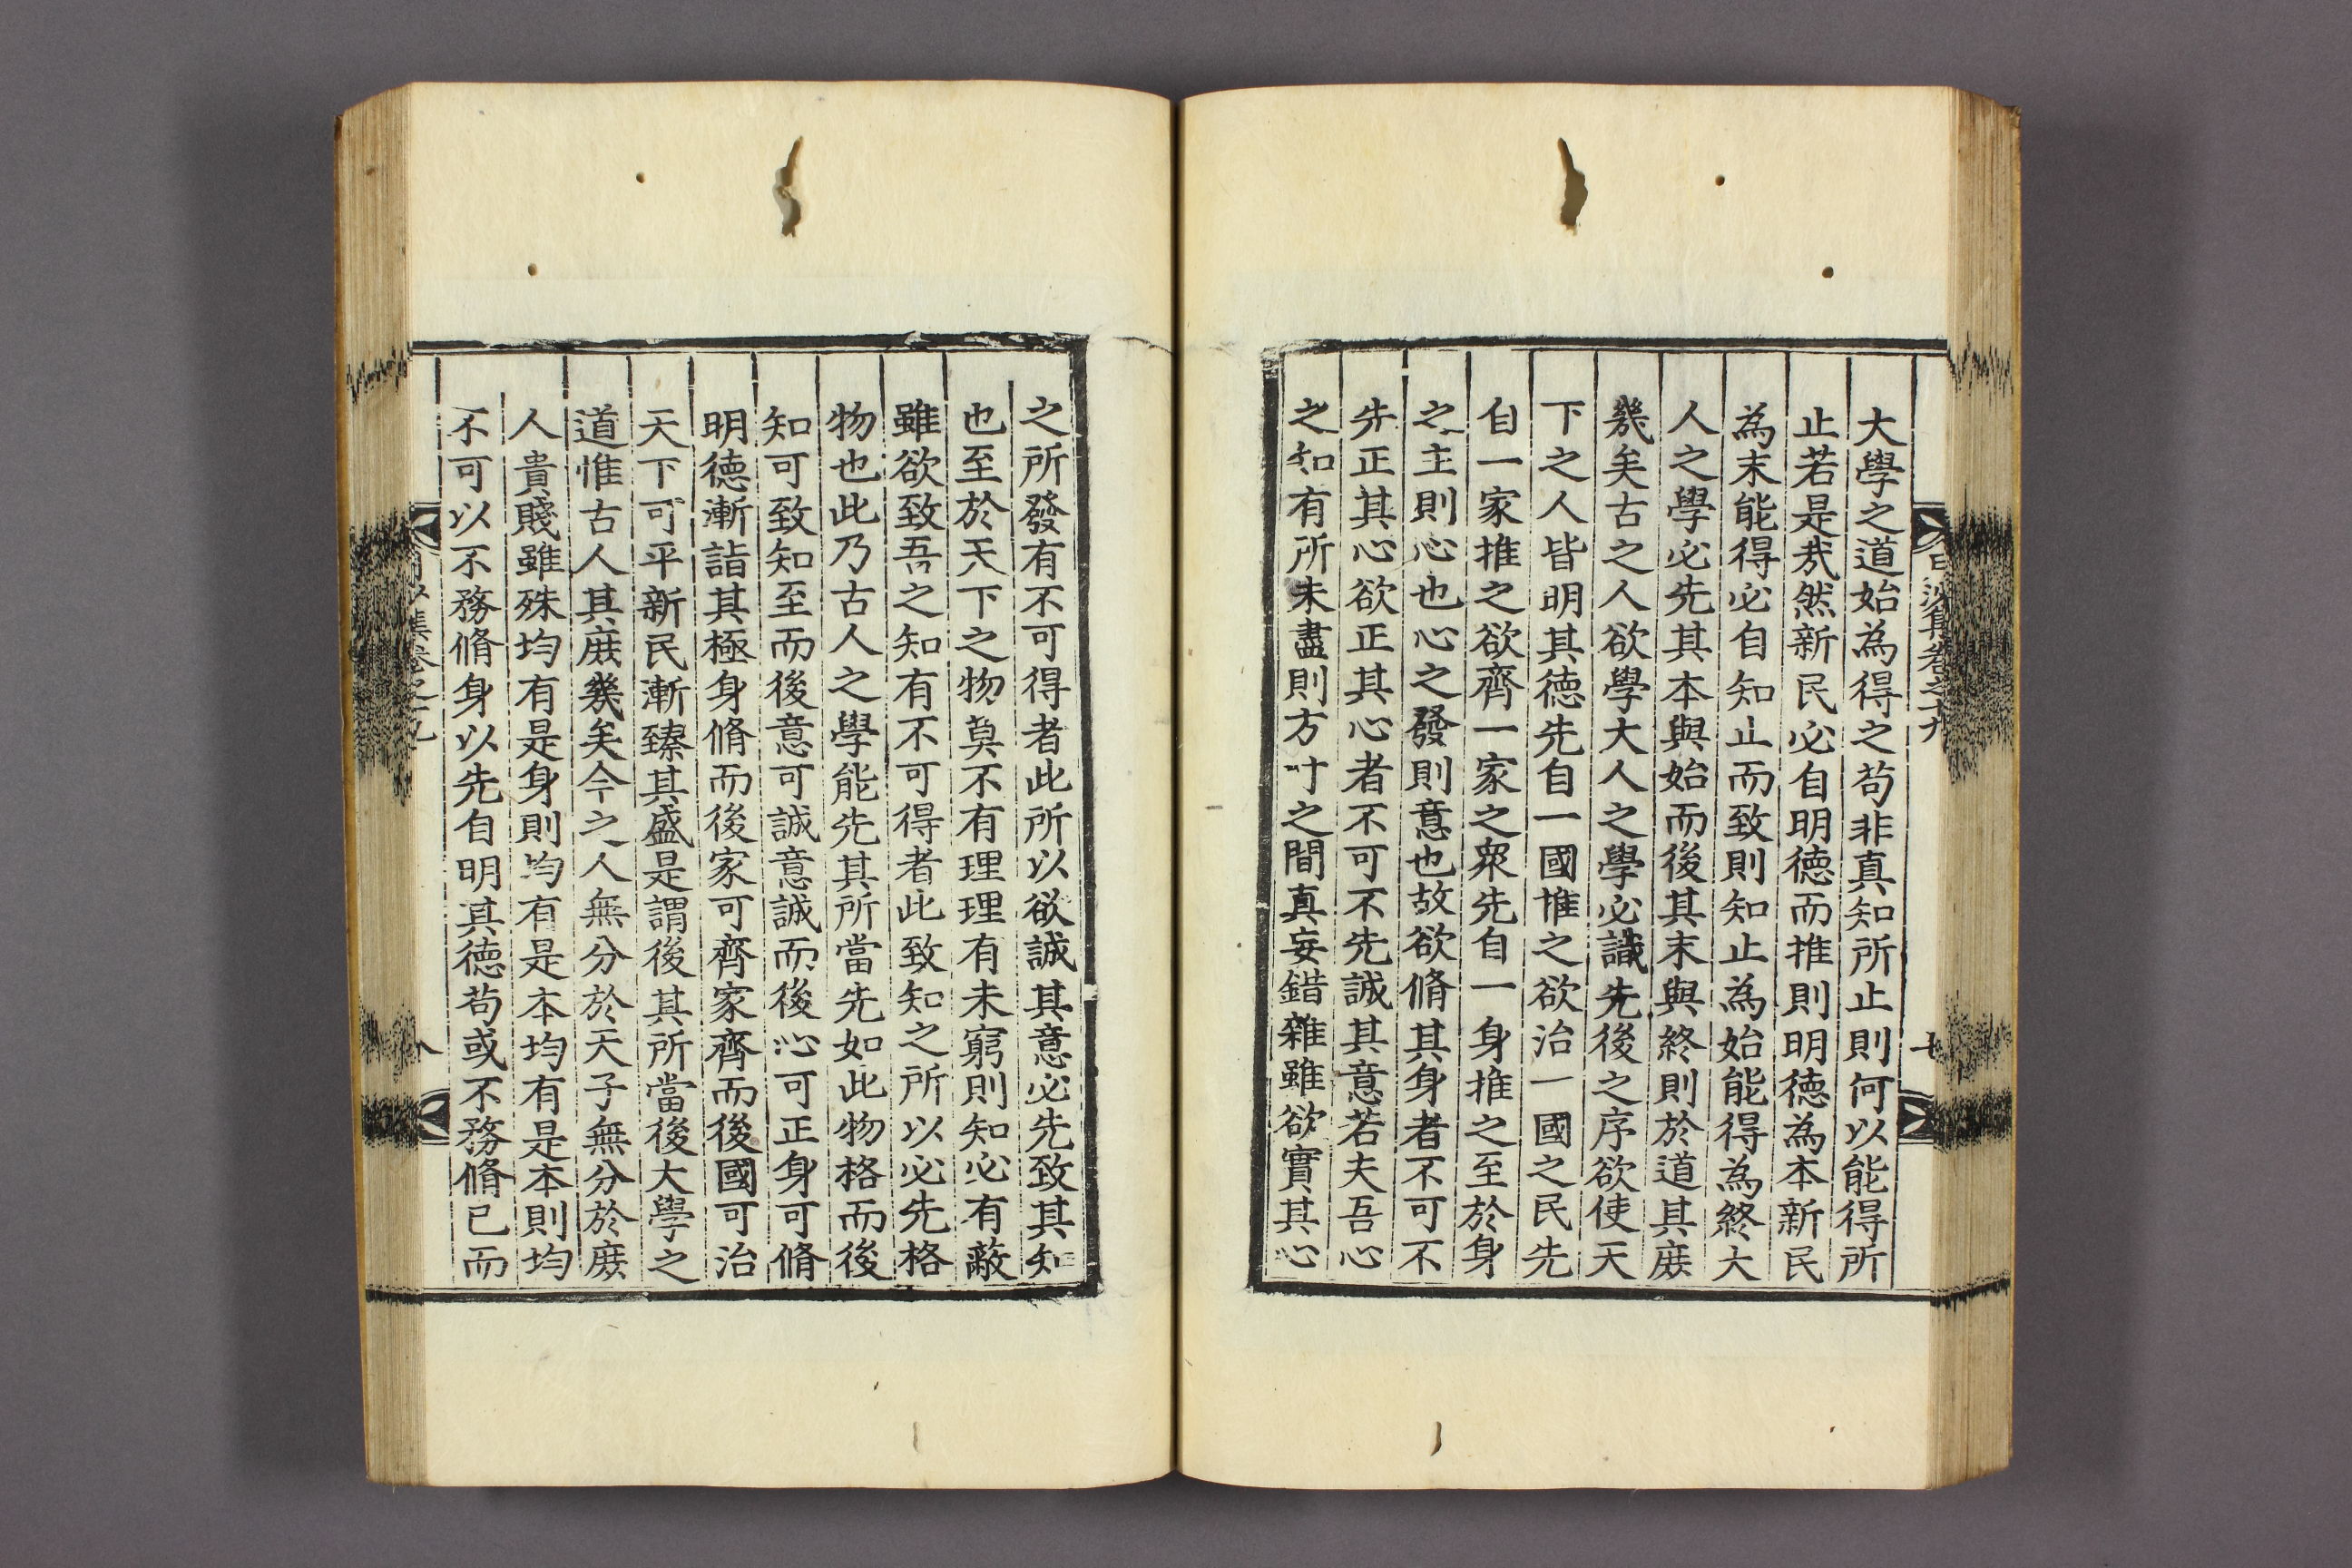 大學之道始為得之苟非真知所止則何以能得所
止若是㢤然新民必自明德而推則明德為本新民
為末能得必自知止而致則知止為始能得為終大
人之學必先其本與始而後其末與終則於道其庻
幾矣古之人欲學大人之學必識先後之序欲使天
下之人皆明其德先自一國惟之欲治一國之民先
自一家推之欲齊一家之衆先自一身推之至於身
之主則心也心之發則意也故欲脩其身者不可不
先正其心欲正其心者不可不先誠其意若夫吾心
之知有所未盡則方寸之間真妄錯雜雖欲實其心
之所發有不可得者此所以欲誠其意必先致其知
也至於天下之物莫不有理理有未窮則知必有蔽
雖欲致吾之知有不可得者此致知之所以必先格
物也此乃古人之學能先其所當先如此物格而後
知可致知至而後意可誠意誠而後心可正身可脩
明德漸詣其極身脩而後家可齊家齊而後國可治
天下可平新民漸臻其盛是謂後其所當後大學之
道惟古人其庻幾矣今之人無分於天子無分於庻
人貴賤雖殊均有是身則均有是本均有是本則均
不可以不務脩身以先自明其德苟或不務脩已而
集卷之九
八